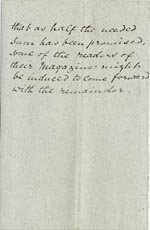 that as half the needed
sum has been promised,
some of the readers of
their Magazine might
be induced to come forward
with the remainder.